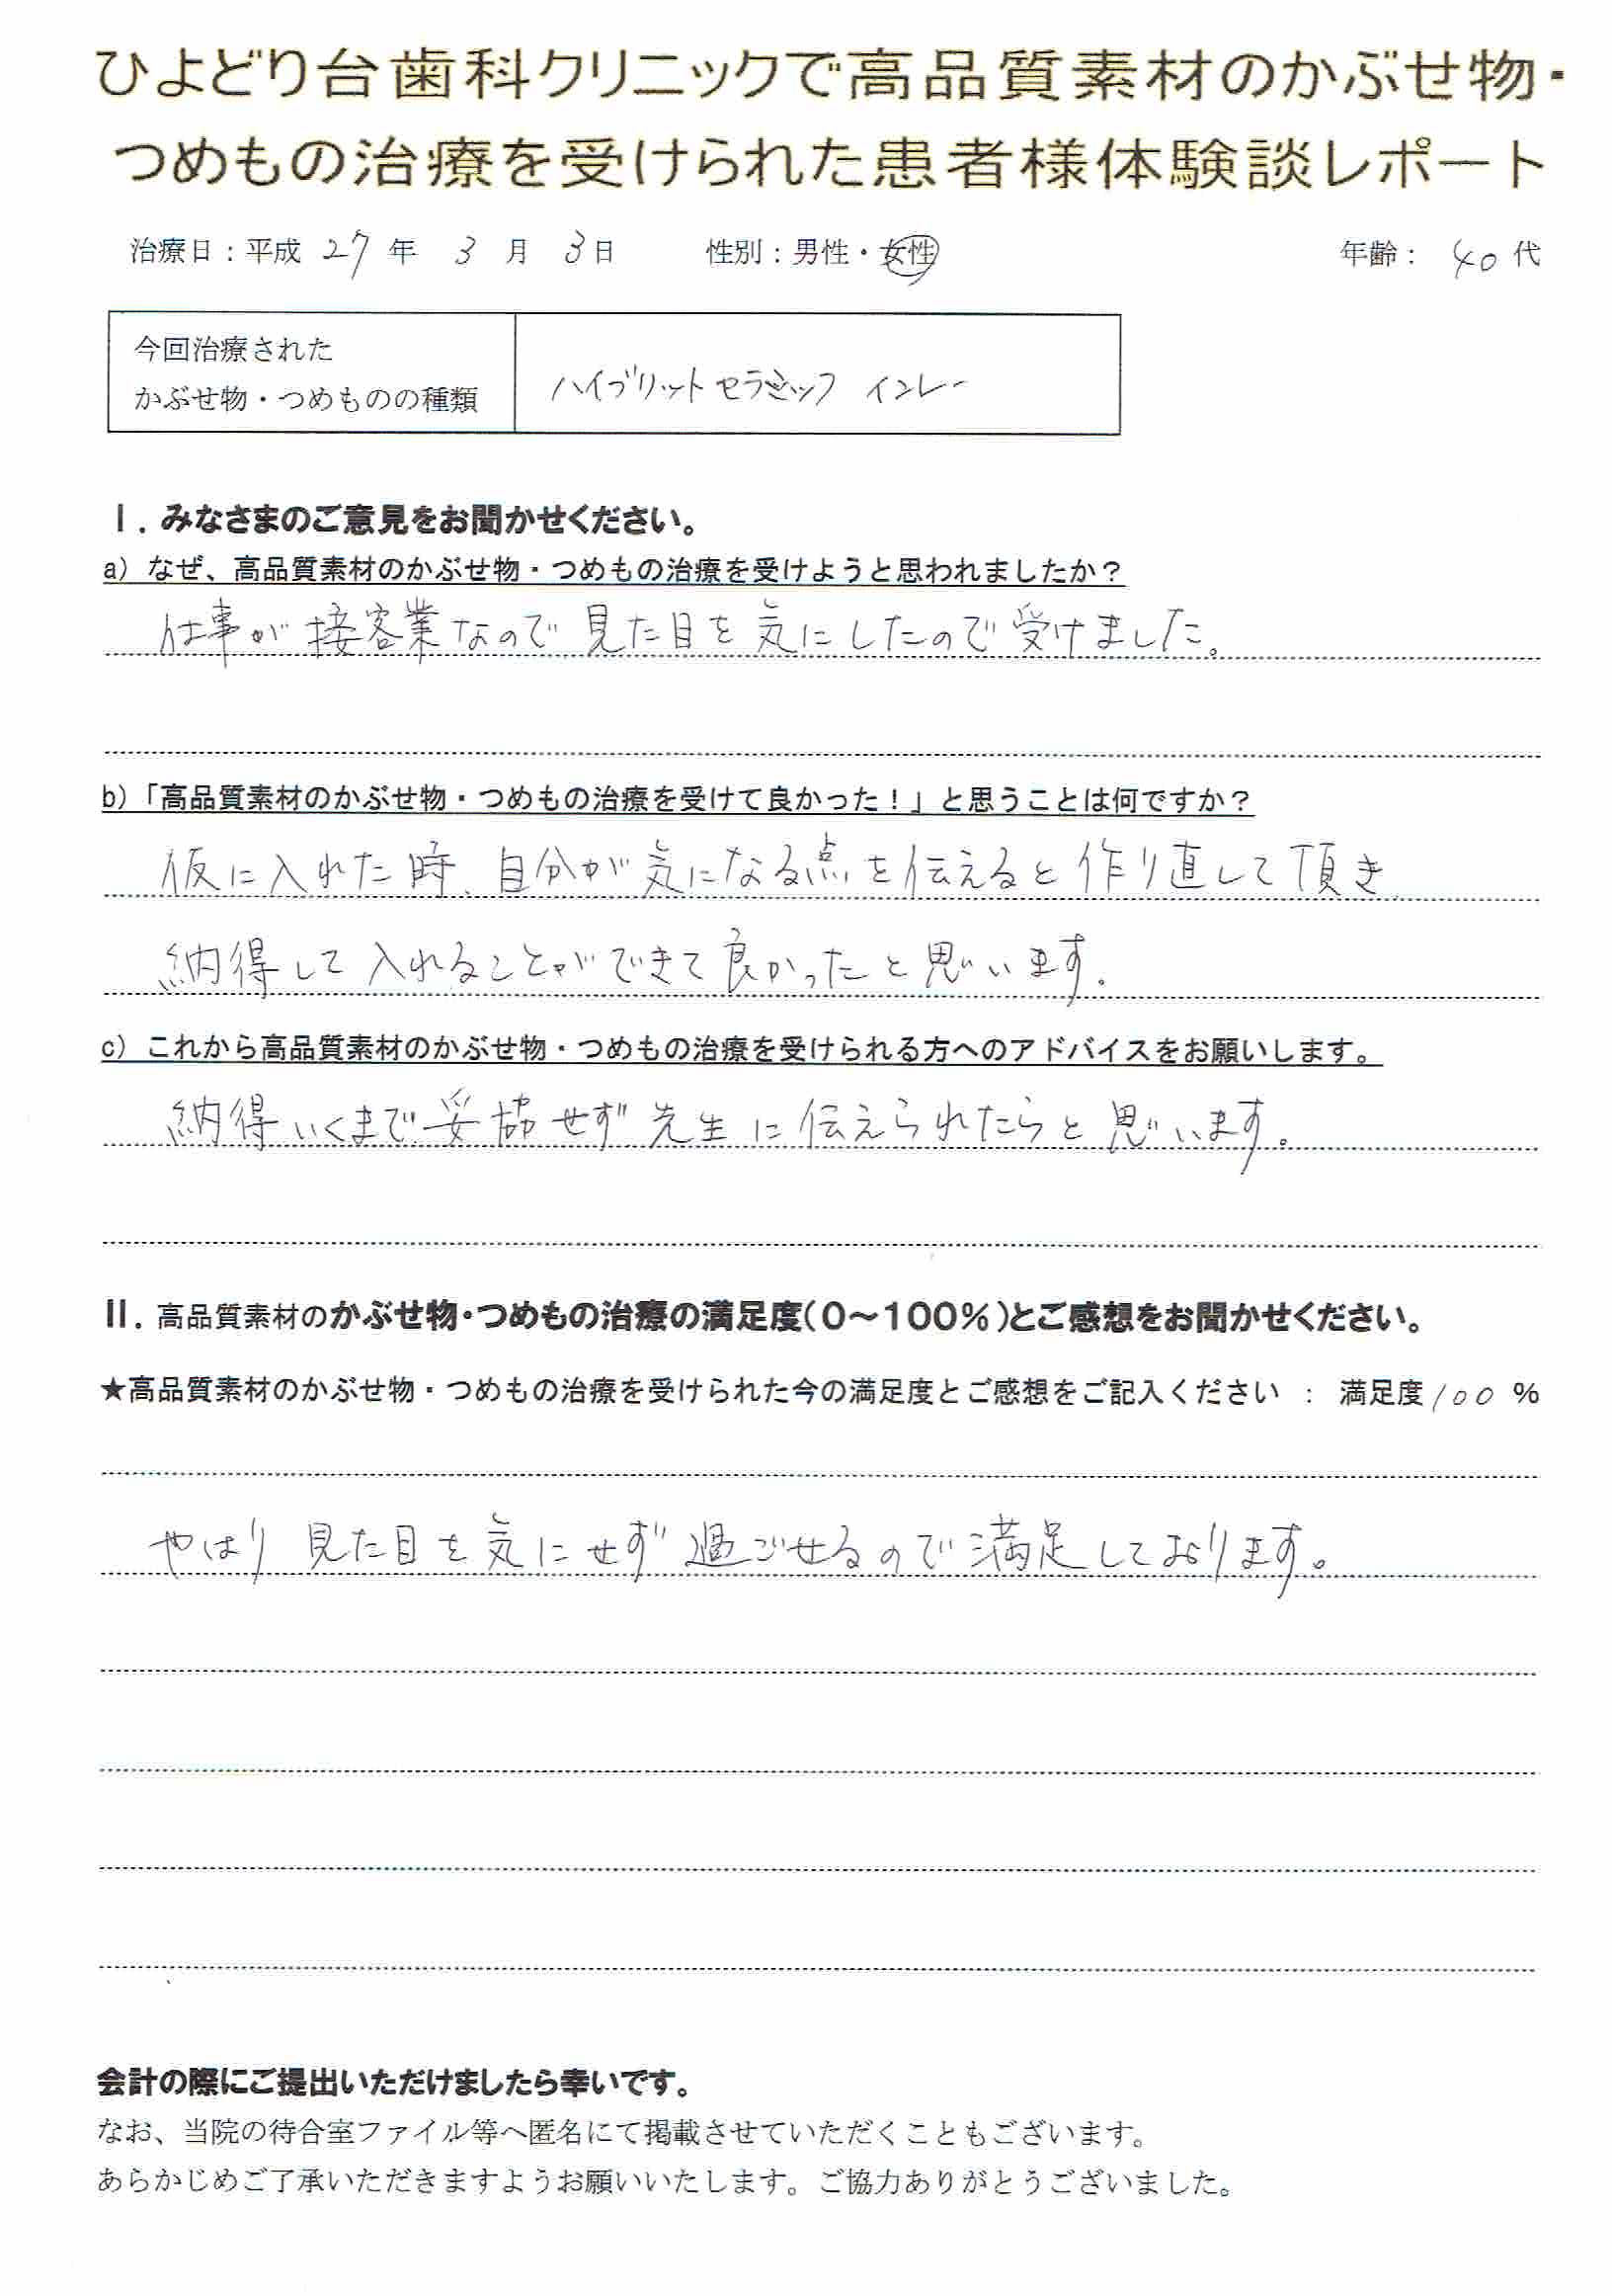 ひよどり台歯科クリニックで高品質素材のかぶせ物・
つめもの治療を受けられた患者様体験談レポート
治療日：平成 27 年 3 月 3日 性別：男性・女性 年齢： 40 代
今回治療された
かぶせ物・つめものの種類
ハイブリットセラミック インレー
Ⅰ. みなさまのご意見をお聞かせください。
a) なぜ、高品質素材のかぶせ物・つめもの治療を受けようと思われましたか？
仕事が接客業なので見た目を気にしたので受けました。
b)「高品質素材のかぶせ物・つめもの治療を受けて良かった！」と思うことは何ですか？
仮に入れた時、自分が気になる点を伝えると作り直して頂き
納得して入れることができて良かったと思います。
c) これから高品質素材のかぶせ物・つめもの治療を受けられる方へのアドバイスをお願いします。
納得いくまで妥協せず先生に伝えられたらと思います。
Ⅱ. 高品質素材のかぶせ物・つめもの治療の満足度(0～100%)とご感想をお聞かせください。
★高品質素材のかぶせ物・つめもの治療を受けられた今の満足度とご感想をご記入ください ： 満足度 100 %
やはり見た目を気にせず過ごせるので満足しております。
会計の際にご提出いただけましたら幸いです。
なお、当院の待合室ファイル等へ匿名にて掲載させていただくこともございます。
あらかじめご了承いただきますようお願いいたします。ご協力ありがとうございました。